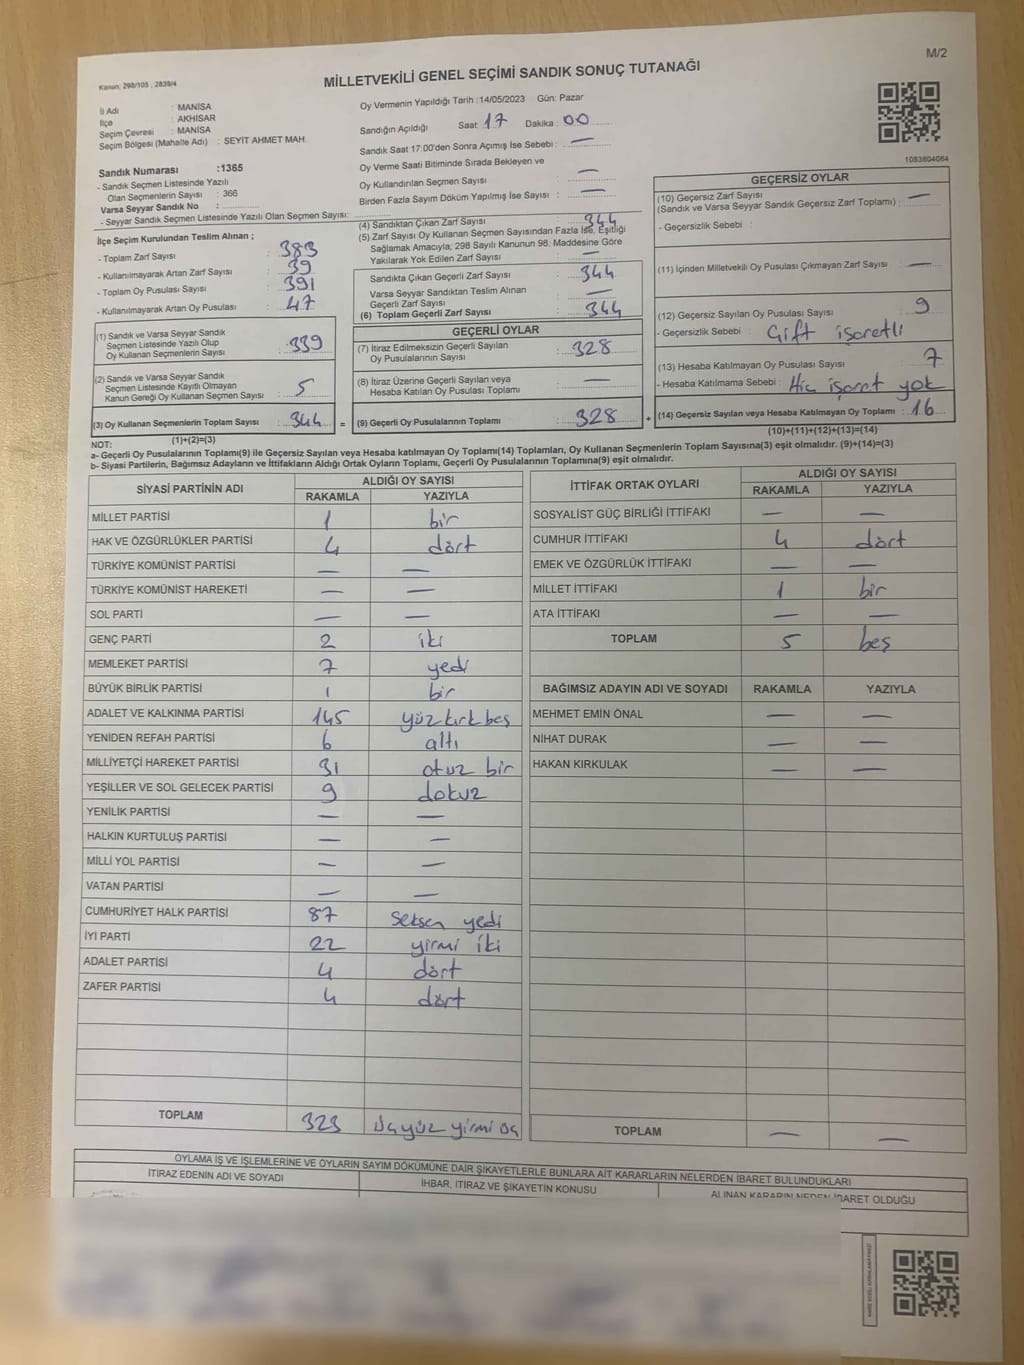 M/2
Kanun: 298/105 , 2839/4
MİLLETVEKİLİ GENEL SEÇİMİ SANDIK SONUÇ TUTANAĞI
İl Adı : MANİSA
İlçe : AKHİSAR
Seçim Çevresi : MANİSA
Seçim Bölgesi (Mahalle Adı) : SEYİT AHMET MAH.
Oy Vermenin Yapıldığı Tarih :14/05/2023 Gün: Pazar
Sandığın Açıldığı Saat: 17 Dakika : 00
Sandık Saat 17:00'den Sonra Açımış İse Sebebi : —
Oy Verme Saati Bitiminde Sırada Bekleyen ve
Oy Kullandırılan Seçmen Sayısı : —
Birden Fazla Sayım Döküm Yapılmış İse Sayısı : —
1083804064
Sandık Numarası :1365
- Sandık Seçmen Listesinde Yazılı
Olan Seçmenlerin Sayısı : 366
Varsa Seyyar Sandık No :
- Seyyar Sandık Seçmen Listesinde Yazılı Olan Seçmen Sayısı:
İlçe Seçim Kurulundan Teslim Alınan ;
- Toplam Zarf Sayısı : 383
- Kullanılmayarak Artan Zarf Sayısı : 39
- Toplam Oy Pusulası Sayısı : 391
- Kullanılmayarak Artan Oy Pusulası : 47
(1) Sandık ve Varsa Seyyar Sandık
Seçmen Listesinde Yazılı Olup
Oy Kullanan Seçmenlerin Sayısı : 339
(2) Sandık ve Varsa Seyyar Sandık
Seçmen Listesinde Kayıtlı Olmayan
Kanun Gereği Oy Kullanan Seçmen Sayısı : 5
(3) Oy Kullanan Seçmenlerin Toplam Sayısı : 344 =
(1)+(2)=(3)
(4) Sandıktan Çıkan Zarf Sayısı : 344
(5) Zarf Sayısı Oy Kullanan Seçmen Sayısından Fazla İse, Eşitliği
Sağlamak Amacıyla, 298 Sayılı Kanunun 98. Maddesine Göre
Yakılarak Yok Edilen Zarf Sayısı : —
Sandıkta Çıkan Geçerli Zarf Sayısı : 344
Varsa Seyyar Sandıktan Teslim Alınan
Geçerli Zarf Sayısı : —
(6) Toplam Geçerli Zarf Sayısı : 344
GEÇERLİ OYLAR
(7) İtiraz Edilmeksizin Geçerli Sayılan
Oy Pusulalarının Sayısı : 328
(8) İtiraz Üzerine Geçerli Sayılan veya
Hesaba Katılan Oy Pusulası Toplamı : —
(9) Geçerli Oy Pusulalarının Toplamı : 328 +
GEÇERSİZ OYLAR
(10) Geçersiz Zarf Sayısı
(Sandık ve Varsa Seyyar Sandık Geçersiz Zarf Toplamı) : —
- Geçersizlik Sebebi :
(11) İçinden Milletvekili Oy Pusulası Çıkmayan Zarf Sayısı : —
(12) Geçersiz Sayılan Oy Pusulası Sayısı : 9
- Geçersizlik Sebebi : Çift işaretli
(13) Hesaba Katılmayan Oy Pusulası Sayısı : 7
- Hesaba Katılmama Sebebi : Hiç işaret yok
(14) Geçersiz Sayılan veya Hesaba Katılmayan Oy Toplamı : 16
(10)+(11)+(12)+(13)=(14)
NOT:
a- Geçerli Oy Pusulalarının Toplamı(9) ile Geçersiz Sayılan veya Hesaba katılmayan Oy Toplamı(14) Toplamları, Oy Kullanan Seçmenlerin Toplam Sayısına(3) eşit olmalıdır. (9)+(14)=(3)
b- Siyasi Partilerin, Bağımsız Adayların ve İttifakların Aldığı Ortak Oyların Toplamı, Geçerli Oy Pusulalarının Toplamına(9) eşit olmalıdır.
SİYASİ PARTİNİN ADI ALDIĞI OY SAYISI
RAKAMLA YAZIYLA
MİLLET PARTİSİ 1 bir
HAK VE ÖZGÜRLÜKLER PARTİSİ 4 dört
TÜRKİYE KOMÜNİST PARTİSİ — —
TÜRKİYE KOMÜNİST HAREKETİ — —
SOL PARTİ — —
GENÇ PARTİ 2 iki
MEMLEKET PARTİSİ 7 yedi
BÜYÜK BİRLİK PARTİSİ 1 bir
ADALET VE KALKINMA PARTİSİ 145 yüz kırk beş
YENİDEN REFAH PARTİSİ 6 altı
MİLLİYETÇİ HAREKET PARTİSİ 31 otuz bir
YEŞİLLER VE SOL GELECEK PARTİSİ 9 dokuz
YENİLİK PARTİSİ — —
HALKIN KURTULUŞ PARTİSİ — —
MİLLİ YOL PARTİSİ — —
VATAN PARTİSİ — —
CUMHURİYET HALK PARTİSİ 87 seksen yedi
İYİ PARTİ 22 yirmi iki
ADALET PARTİSİ 4 dört
ZAFER PARTİSİ 4 dört
TOPLAM 323 üçyüz yirmi üç
İTTİFAK ORTAK OYLARI ALDIĞI OY SAYISI
RAKAMLA YAZIYLA
SOSYALİST GÜÇ BİRLİĞİ İTTİFAKI — —
CUMHUR İTTİFAKI 4 dört
EMEK VE ÖZGÜRLÜK İTTİFAKI — —
MİLLET İTTİFAKI 1 bir
ATA İTTİFAKI — —
TOPLAM 5 beş
BAĞIMSIZ ADAYIN ADI VE SOYADI RAKAMLA YAZIYLA
MEHMET EMİN ÖNAL — —
NİHAT DURAK — —
HAKAN KIRKULAK — —
TOPLAM — —
OYLAMA İŞ VE İŞLEMLERİNE VE OYLARIN SAYIM DÖKÜMÜNE DAİR ŞİKAYETLERLE BUNLARA AİT KARARLARIN NELERDEN İBARET BULUNDUKLARI
İTİRAZ EDENİN ADI VE SOYADI İHBAR, İTİRAZ VE ŞİKAYETİN KONUSU ALINAN KARARIN NEDEN İBARET OLDUĞU